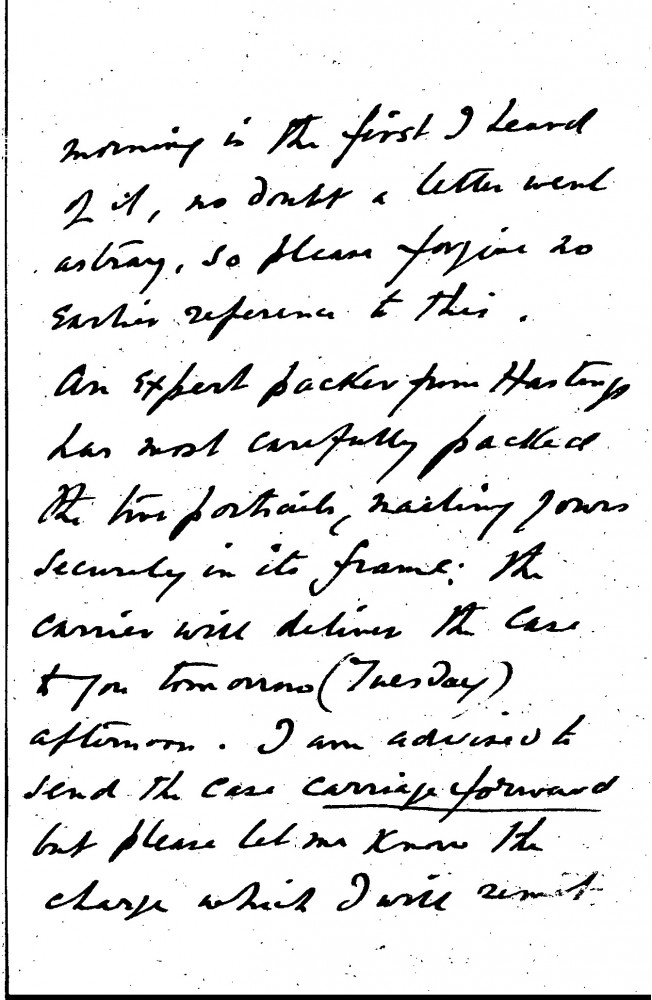 morning is the first I heard
of it, no doubt a letter went
astray, so please forgive no
Earlier reference to this.
An Expert packer from Hastings
has most carefully packed
the two portraits, nailing yours
securely in its frame; the
carrier will deliver the case
to you tomorrow (Tuesday)
afternoon. I am advised to
send the case carriage forward
but please let me know the
charge which I will remit